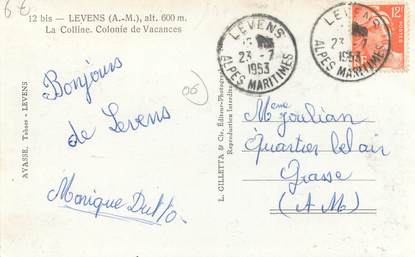 6€
12 bis — LEVENS (A.-M.), alt. 600 m.
La Colline. Colonie de Vacances
Bonjours
de Levens
Monique Dutto.
06
AVASSE, Tabacs - LEVENS
L. GILLETTA & Cie, Éditeur-Photograp
Reproduction Interdite
LEVENS
23 - 7
1953
ALPES MARITIMES
LEVENS
23 - 7
1953
ALPES MARITIMES
12F
POSTES
Mme Joulian
Quartier bel air
Grasse
(A M)